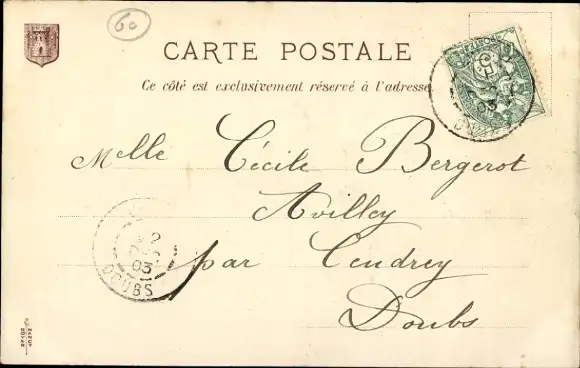 60
CARTE POSTALE
Ce côté est exclusivement réservé à l'adresse
Melle Cécile Bergerot
Avilley
par Cendrey
Doubs
03
DOUBS